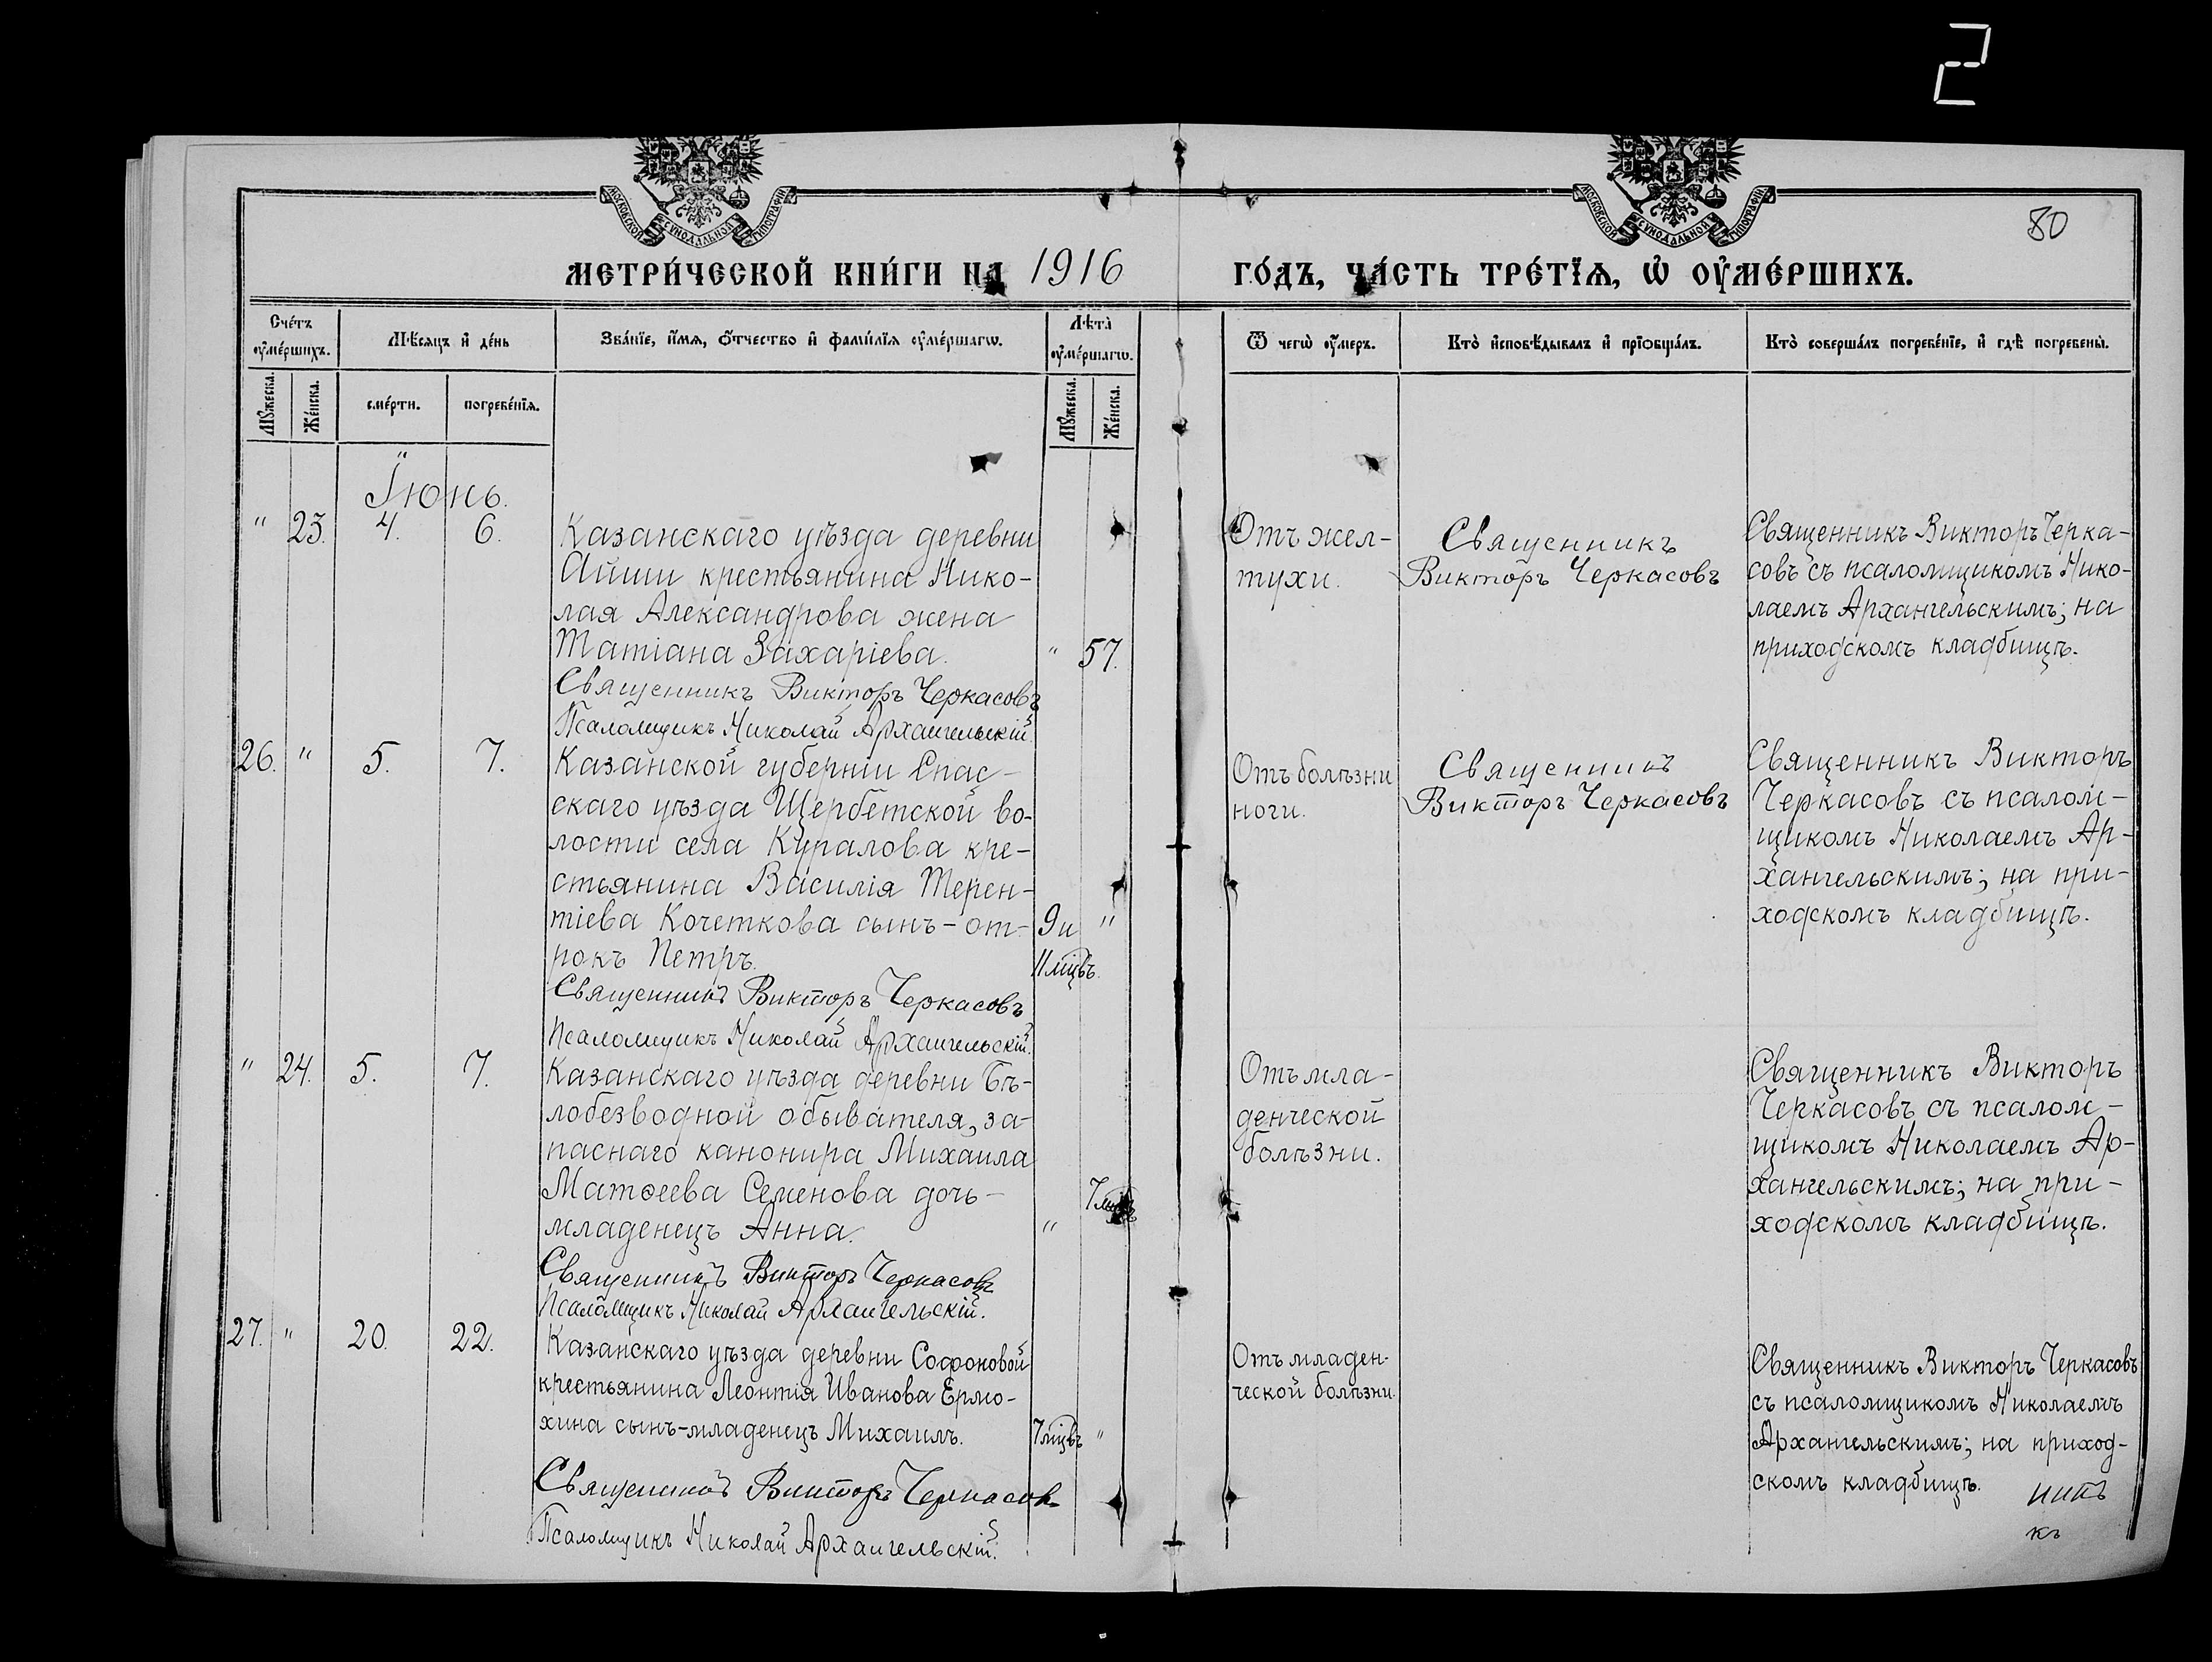 2
МОСКОВСКОЙ СѴНОДАЛЬНОЙ ТИПОГРАФІИ
МОСКОВСКОЙ СѴНОДАЛЬНОЙ ТИПОГРАФІИ
80
МЕТРИ́ЧЕСКОЙ КНИ́ГИ НА 1916
ГО́ДЪ, ЧА́СТЬ ТРЕ́ТЇѦ, Ѿ ОУ҆МЕ́РШИХЪ.
Сче́тъ оу҆ме́ршихъ.
Мѣ́сяцъ и҆ де́нь
Зва́нїе, и҆́мѧ, ѻ҆́тчество и҆ фами́лїѧ оу҆ме́ршагѡ.
Лѣ̀та оу҆ме́ршагѡ.
Ѿ чегѡ̀ оу҆́меръ.
Кто̀ и҆сповѣ́дывалъ и҆ прїѡбща́лъ.
Кто̀ соверша́лъ погребе́нїе, и҆ гдѣ̀ погребены̀.
Мꙋ́жеска.
Же́нска.
сме́рти.
погребе́нїѧ.
Мꙋ́жеска.
Же́нска.
Іюнь.
" 23. 4. 6.
Казанскаго уѣзда деревни
Айши крестьянина Нико-
лая Александрова жена
Татіана Захаріева. " 57.
Священникъ Викторъ Черкасовъ
Псаломщикъ Николай Архангельскій.
Отъ жел-
тухи.
Священникъ
Викторъ Черкасовъ
Священникъ Викторъ Черка-
совъ съ псаломщикомъ Нико-
лаемъ Архангельскимъ; на
приходскомъ кладбищѣ.
26. " 5. 7.
Казанской губерніи Спас-
скаго уѣзда Щербетской во-
лости села Куралова кре-
стьянина Василія Терен-
тіева Кочеткова сынъ - от- 9 и "
рокъ Петръ. 11 мцвъ.
Священникъ Викторъ Черкасовъ
Псаломщикъ Николай Архангельскій.
Отъ болѣзни
ноги.
Священникъ
Викторъ Черкасовъ
Священникъ Викторъ
Черкасовъ съ псалом-
щикомъ Николаемъ Ар-
хангельскимъ; на при-
ходскомъ кладбищѣ.
" 24. 5. 7.
Казанскаго уѣзда деревни Бѣ-
лобезводной обывателя, за-
паснаго канонира Михаила
Матѳеева Семенова дочь - 7
младенецъ Анна. "
Священникъ Викторъ Черкасовъ
Псаломщикъ Николай Архангельскій.
Отъ мла-
денческой
болѣзни.
Священникъ Викторъ
Черкасовъ съ псалом-
щикомъ Николаемъ Ар-
хангельскимъ; на при-
ходскомъ кладбищѣ.
27. " 20. 22.
Казанскаго уѣзда деревни Софоновой
крестьянина Леонтія Иванова Ермо-
хина сынъ-младенецъ Михаилъ. 7 мцвъ "
Священникъ Викторъ Черкасовъ
Псаломщикъ Николай Архангельскій.
Отъ младен-
ческой болѣзни.
Священникъ Викторъ Черкасовъ
съ псаломщикомъ Николаемъ
Архангельскимъ; на приход-
скомъ кладбищѣ.
никъ
къ